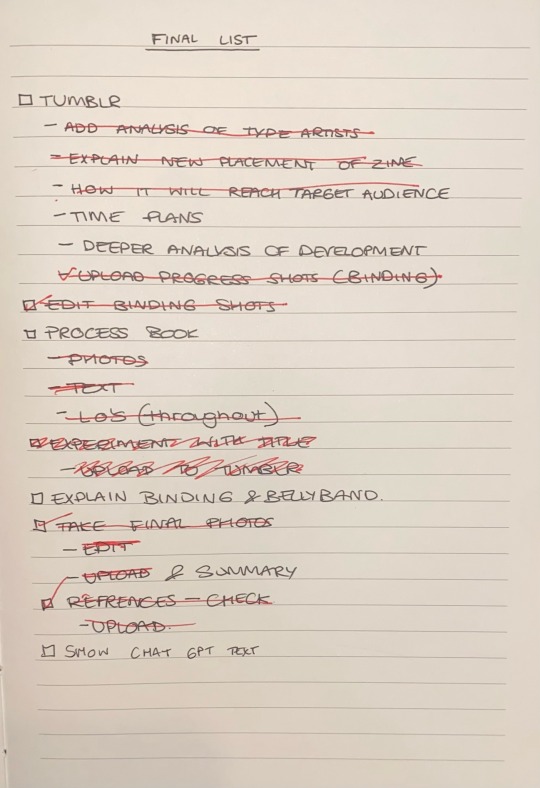 FINAL LIST
TUMBLR
- ADD ANALYSIS OF TYPE ARTISTS
- EXPLAIN NEW PLACEMENT OF ZINE
- HOW IT WILL REACH TARGET AUDIENCE
- TIME PLANS
- DEEPER ANALYSIS OF DEVELOPMENT
UPLOAD PROGRESS SHOTS (BINDING)
EDIT BINDING SHOTS
PROCESS BOOK
- PHOTOS
- TEXT
- LO'S (throughout)
EXPERIMENT WITH TITLE
- UPLOAD TO TUMBLR
EXPLAIN BINDING & BELLYBAND.
TAKE FINAL PHOTOS
- EDIT
- UPLOAD & SUMMARY
REFRENCES - CHECK
- UPLOAD
SHOW CHAT GPT TEXT